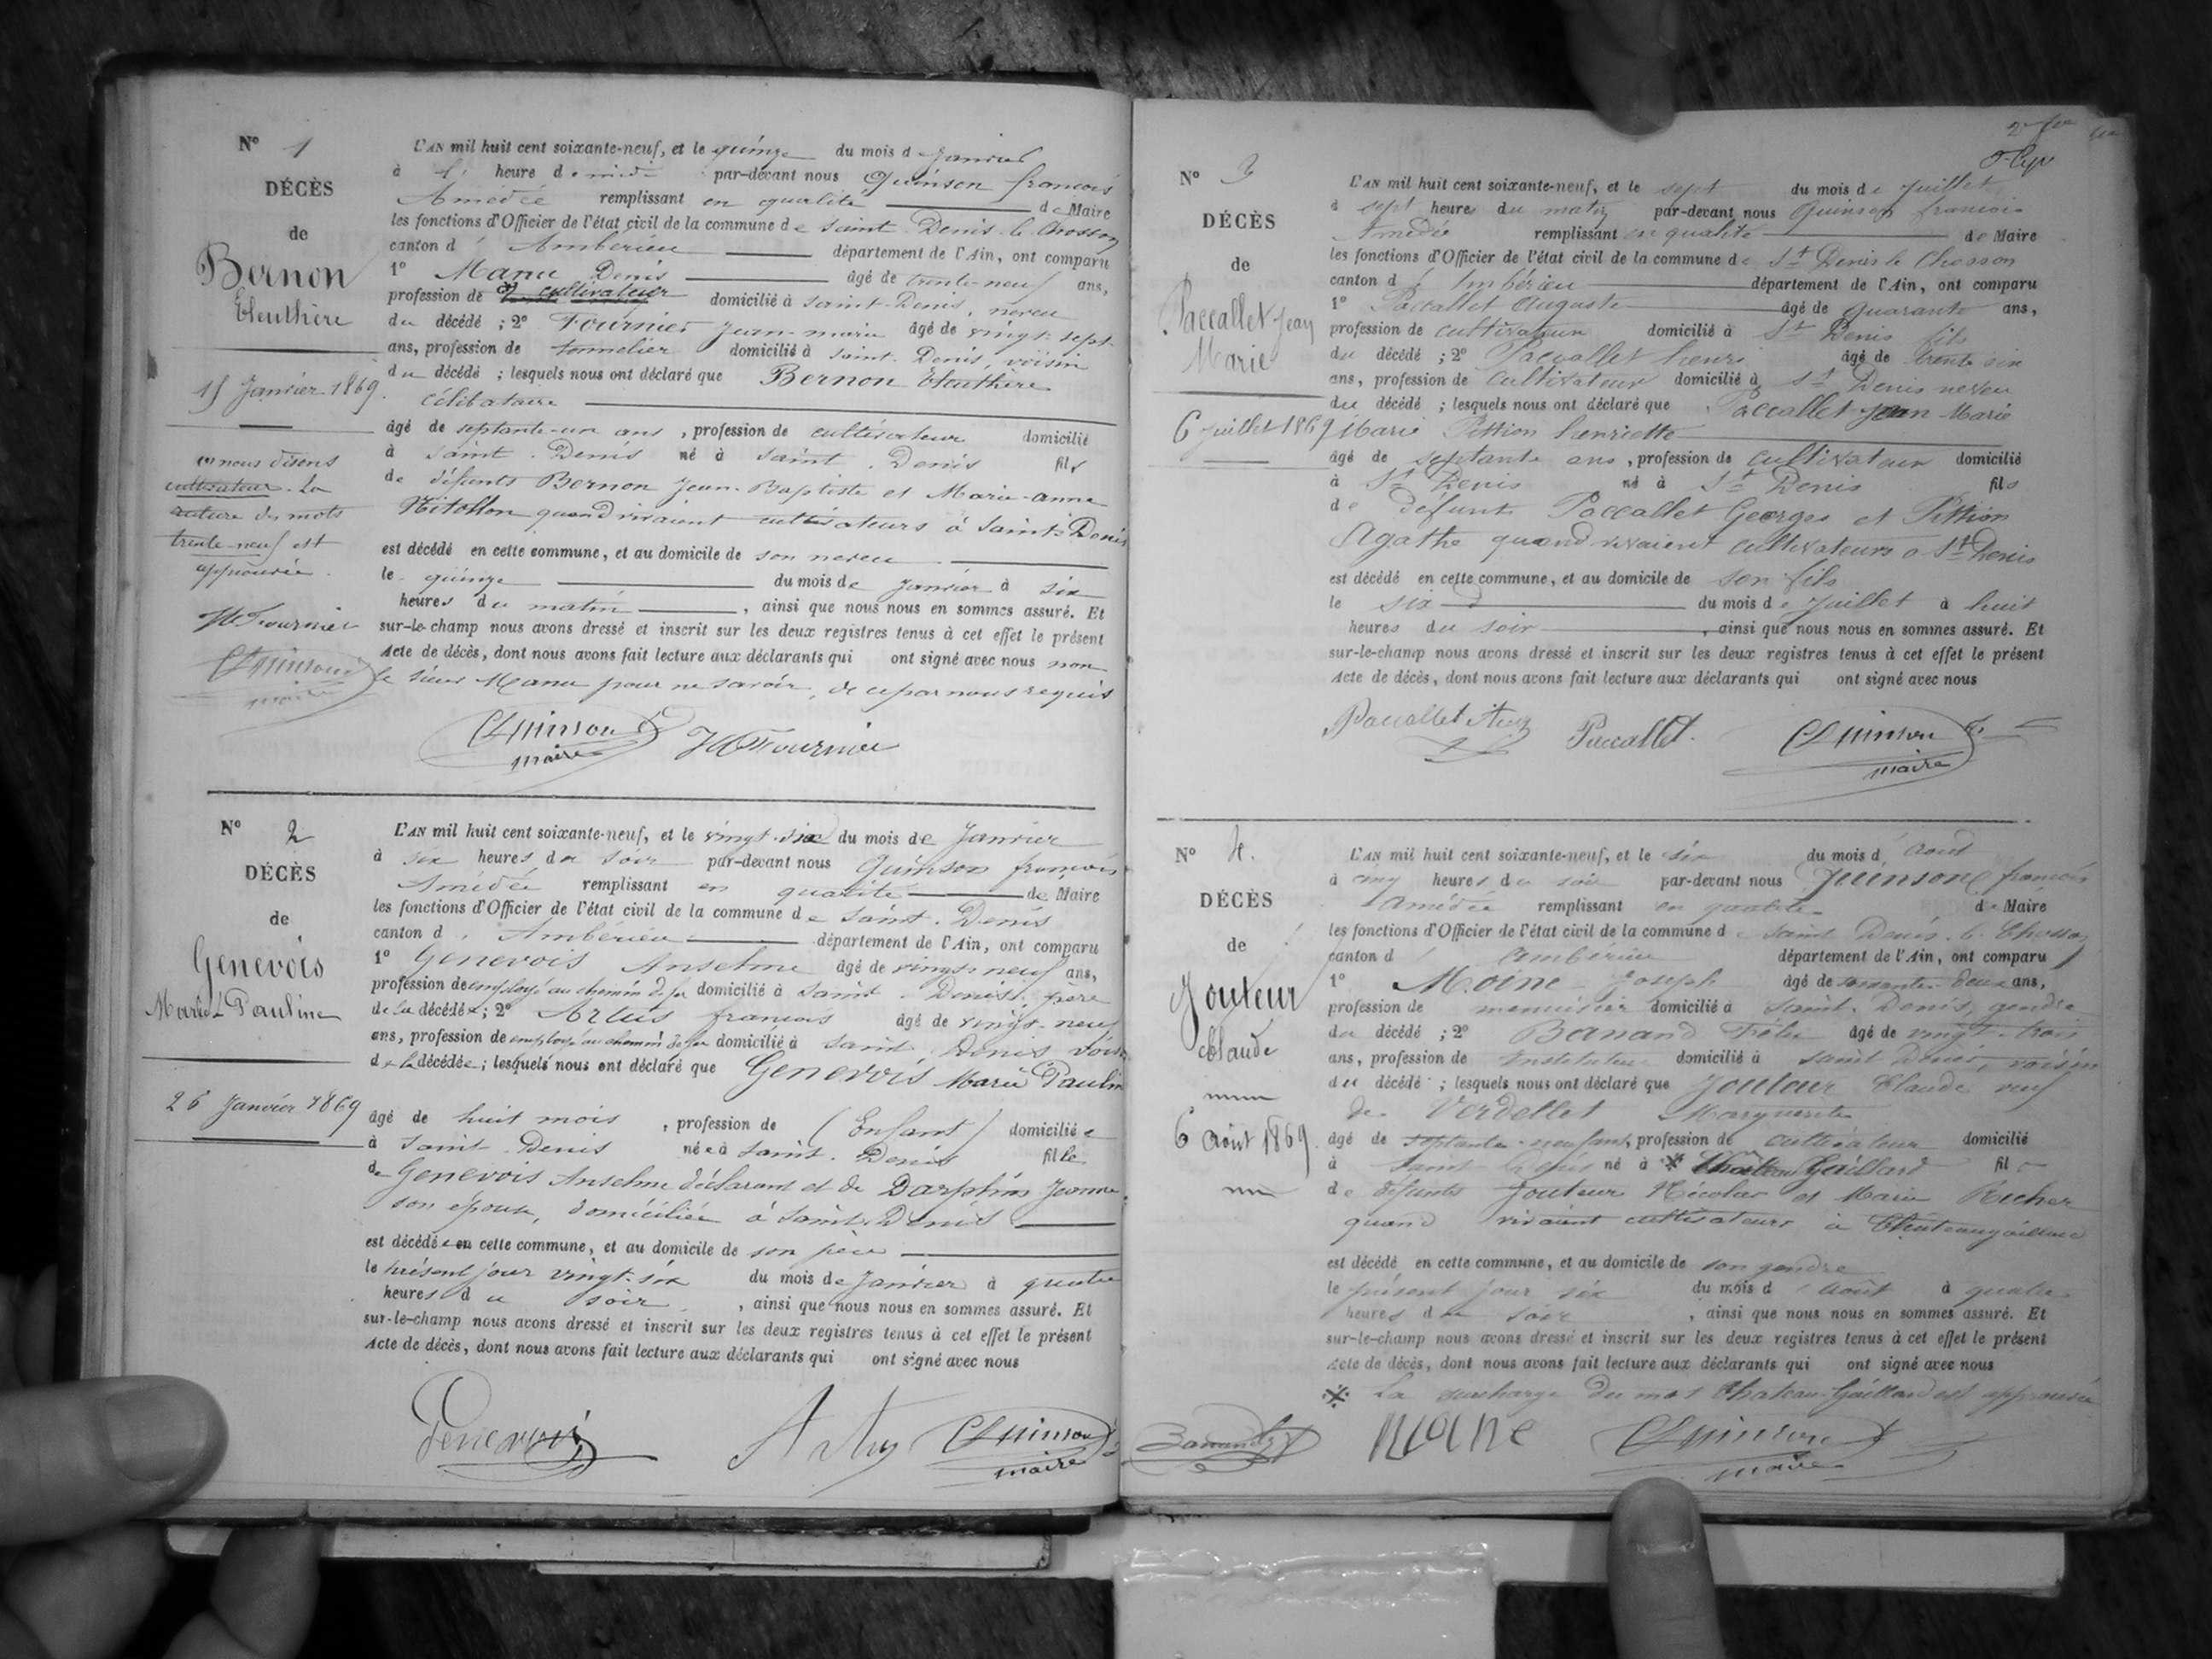 N° 1
DÉCÈS
de
Bernon
Eleuthère
15 Janvier 1869.
(1) nous disons
cultivateur. La
rature des mots
trente-neuf est
approuvée.
H Fournier
Quinson
maire
L'AN mil huit cent soixante-neuf, et le quinze du mois de Janvier
à heure de midi par-devant nous Quinson françois
Amédée remplissant en qualité de Maire
les fonctions d'Officier de l'état civil de la commune de Saint Denis le Chosson
canton d' Ambérieu département de l'Ain, ont comparu
1° Manu Denis âgé de trente-neuf ans,
profession de cultivateur domicilié à Saint-Denis, neveu
du décédé ; 2° Fournier Jean-marie âgé de vingt-sept
ans, profession de tonnelier domicilié à Saint-Denis, voisin
du décédé ; lesquels nous ont déclaré que Bernon Eleuthère
célibataire
âgé de septante-un ans, profession de cultivateur domicilié
à Saint-Denis né à Saint-Denis fils
de défunts Bernon Jean-Baptiste et Marie-anne
quand vivaient cultivateurs à Saint-Denis
est décédé en cette commune, et au domicile de son neveu
le quinze du mois de Janvier à six
heures du matin, ainsi que nous nous en sommes assuré. Et
sur-le-champ nous avons dressé et inscrit sur les deux registres tenus à cet effet le présent
Acte de décès, dont nous avons fait lecture aux déclarants qui ont signé avec nous non
le sieur Manu pour ne savoir, de ce par nous requis
Quinson
maire
H Fournier
N° 2
DÉCÈS
de
Genevois
Marie Pauline
26 Janvier 1869
L'AN mil huit cent soixante-neuf, et le vingt-six du mois de Janvier
à six heures du soir par-devant nous Quinson françois
Amédée remplissant en qualité de Maire
les fonctions d'Officier de l'état civil de la commune de Saint-Denis
canton d' Ambérieu département de l'Ain, ont comparu
1° Genevois Anselme âgé de vingt-neuf ans,
profession de employé au chemin de fer domicilié à Saint-Denis, père
de la décédée; 2° Artus francois âgé de vingt-neuf
ans, profession de employé au chemin de fer domicilié à Saint-Denis voisin
de la décédée; lesquels nous ont déclaré que Genevois Marie Pauline
âgé de huit mois, profession de (Enfant) domiciliée
à Saint-Denis née à Saint-Denis fille
de Genevois Anselme déclarant et de Darphin Jeanne
son épouse, domiciliée à Saint-Denis
est décédée en cette commune, et au domicile de son père
le présent jour vingt-six du mois de Janvier à quatre
heures du soir, ainsi que nous nous en sommes assuré. Et
sur-le-champ nous avons dressé et inscrit sur les deux registres tenus à cet effet le présent
Acte de décès, dont nous avons fait lecture aux déclarants qui ont signé avec nous
Genevois
Artus
Quinson
maire
N° 3
DÉCÈS
de
Paccallet Jean
Marie
6 Juillet 1869
L'AN mil huit cent soixante-neuf, et le sept du mois de Juillet
à sept heures du matin par-devant nous Quinson francois
Amédée remplissant en qualité de Maire
les fonctions d'Officier de l'état civil de la commune de St Denis le Chosson
canton d' Ambérieu département de l'Ain, ont comparu
1° Paccallet Auguste âgé de quarante ans,
profession de cultivateur domicilié à St Denis fils
du décédé ; 2° Paccallet henri âgé de trente six
ans, profession de cultivateur domicilié à St Denis neveu
du décédé ; lesquels nous ont déclaré que Paccallet Jean Marie
Marié Pittion henriette
âgé de septante ans, profession de cultivateur domicilié
à St Denis né à St Denis fils
de défunts Paccallet Georges et Pittion
Agathe quand vivaient cultivateurs a St Denis
est décédé en cette commune, et au domicile de son fils
le six du mois de Juillet à huit
heures du soir, ainsi que nous nous en sommes assuré. Et
sur-le-champ nous avons dressé et inscrit sur les deux registres tenus à cet effet le présent
Acte de décès, dont nous avons fait lecture aux déclarants qui ont signé avec nous
Paccallet Aug
Paccallet.
Quinson
maire
N° 4.
DÉCÈS
de
Jouteur
Claude
6 Août 1869.
L'AN mil huit cent soixante-neuf, et le six du mois d' Aout
à cinq heures du soir par-devant nous Quinson francois
Amédée remplissant en qualité de Maire
les fonctions d'Officier de l'état civil de la commune de Saint Denis le Chosson
canton d' Ambérieu département de l'Ain, ont comparu
1° Moine Joseph âgé de soixante deux ans,
profession de menuisier domicilié à Saint-Denis, gendre
du décédé ; 2° Banand Félix âgé de vingt-trois
ans, profession de Instituteur domicilié à Saint Denis, voisin
du décédé ; lesquels nous ont déclaré que Jouteur Claude veuf
de Verdellet Marguerite
âgé de septante-neuf ans, profession de cultivateur domicilié
à Saint Denis né à Château Gaillard fils
de défunts Jouteur Nicolas et Marie Richer
quand vivaient cultivateurs à Chateaugaillard
est décédé en cette commune, et au domicile de son gendre
le présent jour six du mois d' Août à quatre
heures du soir, ainsi que nous nous en sommes assuré. Et
sur-le-champ nous avons dressé et inscrit sur les deux registres tenus à cet effet le présent
Acte de décès, dont nous avons fait lecture aux déclarants qui ont signé avec nous
La surcharge du mot Chateau-Gaillard est approuvée
Banand
Moine
Quinson
maire